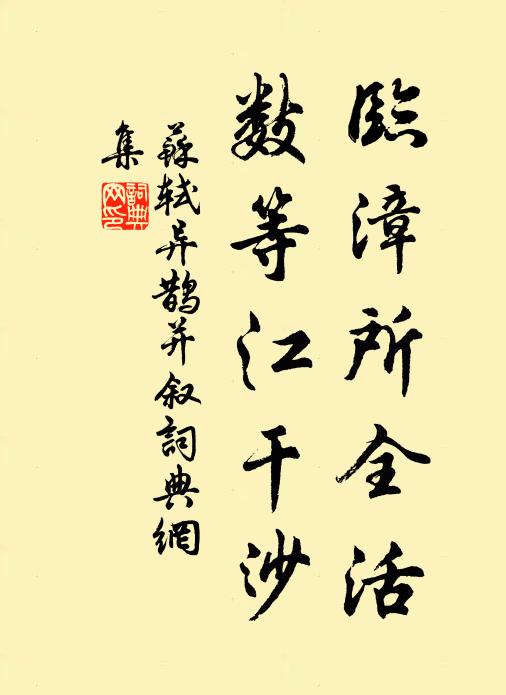 臨漳所全活
數等江干沙
蘇軾异鵲并叙詞典網
集
詞典网印